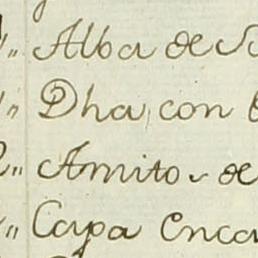 Alba de
Dha, con
Amito de
Capa Enca